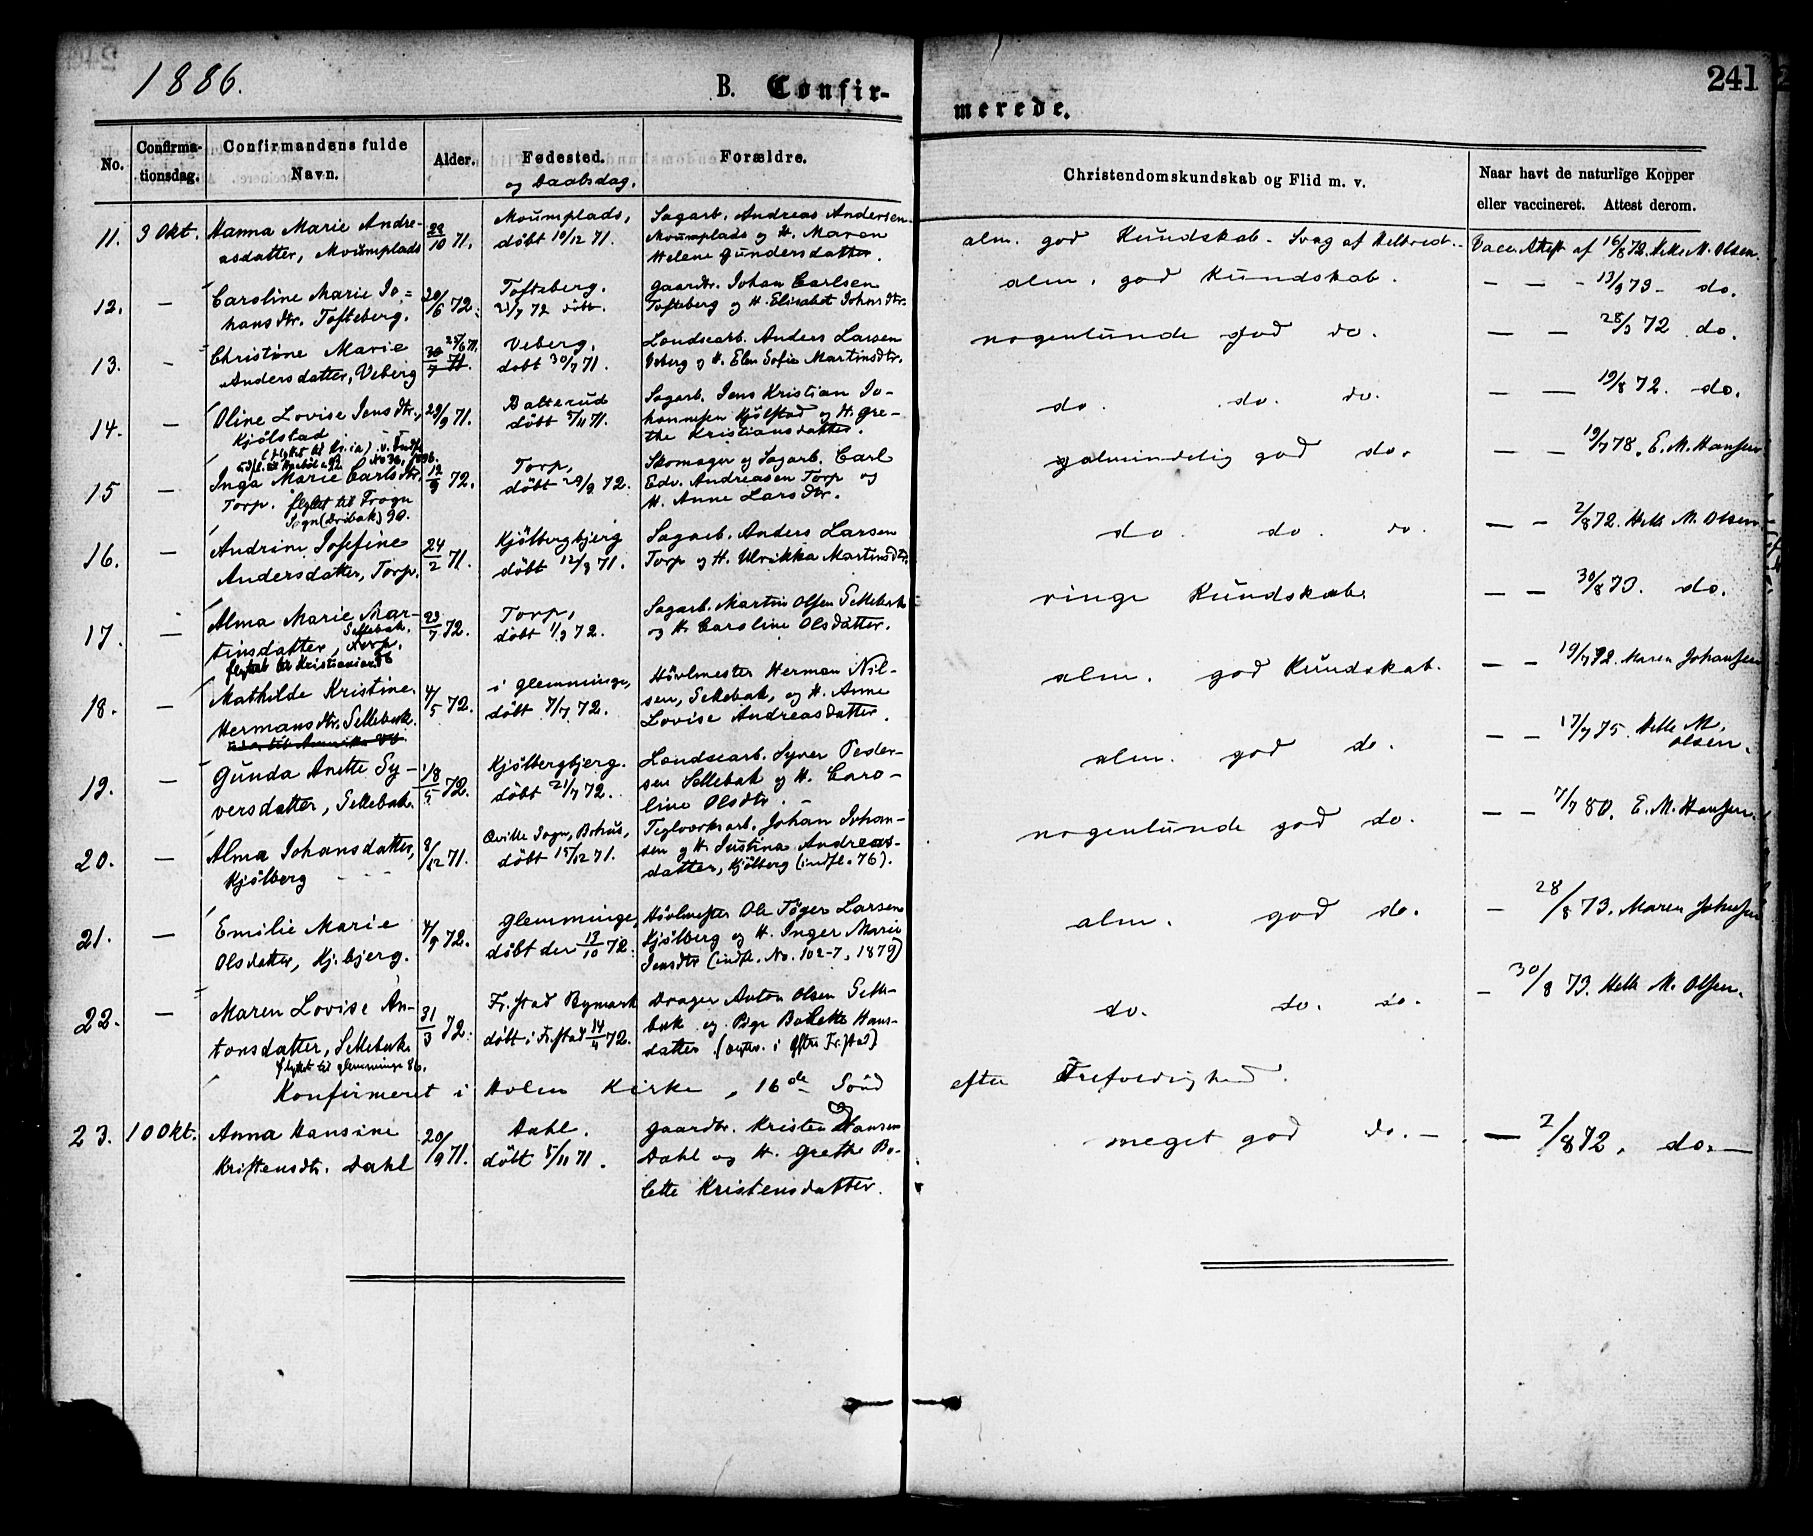 1886.
B. Confir-
merede.
241
No.
Confirma-
tionsdag.
Confirmandens fulde
Navn.
Alder.
Fødested.
og Daabsdag.
Forældre.
Christendomskundskab og Flid m. v.
Naar havt de naturlige Kopper
eller vaccineret. Attest derom.
11. 3 Okt.
Hanna Marie Andre-
asdatter, Moumplads
28/10 71.
Moumplads,
döbt 10/12 71.
Sagarb. Andreas Andersen
Moumplads og H. Maren
Helene Gundersdatter.
alm. god Kundskab. Svag af Helbred.
Vacc. Attest af 16/8 72. Helle M. Olsen.
12. —
Caroline Marie Jo-
hansdtr. Tofteberg.
20/6 72.
Tofteberg.
21/7 72 döbt.
Gaardbr. Johan Carlsen
Tofteberg og H. Elisabet Johnsdtr.
alm. god Kundskab.
— — - 13/9 73 - do.
13. —
Christine Marie
Andersdatter, Veberg
25/6 71.
30/7 71.
Veberg.
döbt 30/7 71.
Londsearb. Anders Larsen
Veberg og H. Elen Sofie Martinsdtr.
nogenlunde god do.
— — 28/3 72 do.
14. —
Oline Lovise Jensdtr.,
Kjölstad
29/9 71.
Balterud
döbt 5/11 71.
Sagarb. Jens Kristian Jo-
hannesen Kjölstad og H. Gre-
the Kristiansdatter.
do. do. do.
— — 19/8 72. do.
15 —
Inga Marie Carlsdtr.
Torp. flyttet til Frogn
Sogn (Dröbak) 90.
12/9 72.
Torp,
döbt 29/9 72.
Skomager og Sagarb. Carl
Edv. Andreasen Torp og
H. Anne Larsdtr.
almindelig god do.
— — 19/7 78. E. M. Hansen
16. —
Andrine Josefine
Andersdatter, Torp.
24/2 71.
Kjölbergbjerg
döbt 12/3 71.
Sagarb. Anders Larsen
Torp og H. Ulrikka Martinsdtr.
do. do. do.
— — 2/8 72. Helle M. Olsen
17. —
Alma Marie Mar-
tinsdatter, Sellebak.
Torp.
flyttet til Kristiania 96
23/7 72.
Torp,
döbt 1/9 72.
Sagarb. Martin Olsen Sellebak
og H. Caroline Olsdatter.
ringe Kundskab.
— — 30/8 73. do.
18. —
Mathilde Kristine
Hermansdtr. Sellebak.
4/5 72.
i Glemminge,
döbt 7/7 72.
Hövlmester Herman Nil-
sen, Sellebak, og H. Anne
Lovise Andreasdatter.
alm. god Kundskab.
— — 19/7 72. Maren Johansen
19. —
Gunda Anette Sy-
versdatter, Sellebak.
18/5 72.
Kjölbergbjerg.
döbt 21/7 72.
Londsearb. Syver Peder-
sen Sellebak og H. Caro-
line Olsdtr.
alm. god do.
— — 17/7 75. Helle M.
Olsen.
20. —
Alma Johansdatter,
Kjölberg
8/12 71.
Qville Sogn, Bohus,
döbt 15/12 71.
Teglværksarb. Johan Johan-
sen og H. Justina Andreas-
datter, Kjölberg (indfl. 76).
nogenlunde god do.
— — 7/7 80. E. M. Hansen.
21. —
Emilie Marie
Olsdatter, Kj.bjerg.
4/9 72.
Glemminge,
döbt den 13/10 72.
Hövlmester Ole Töger Larsen
Kjölberg og H. Inger Marie
Jensdtr (indfl. No. 102-7, 1879)
alm. god do.
— 28/8 73. Maren Johnsen
22. —
Maren Lovise An-
tonsdatter, Sellebak
flyttet til Glemminge 86.
31/3 72.
Fr.stad Bymark
döbt i Fr.stad 14/4 72.
Drager Anton Olsen Selle-
bak og Pige Bolette Hans-
datter.
do. do. do.
— 30/8 73. Helle M. Olsen.
Konfirmeret i Holm Kirke, 16de Sönd efter Trefoldighed.
23. 10 Okt.
Anna Hansine
Kristensdtr. Dahl
20/9 71.
Dahl.
döbt 5/11 71.
Gaardbr. Kristen Hansen
Dahl og H. Grethe Bo-
lette Kristensdatter.
meget god do. —
— 2/8 72. do. —